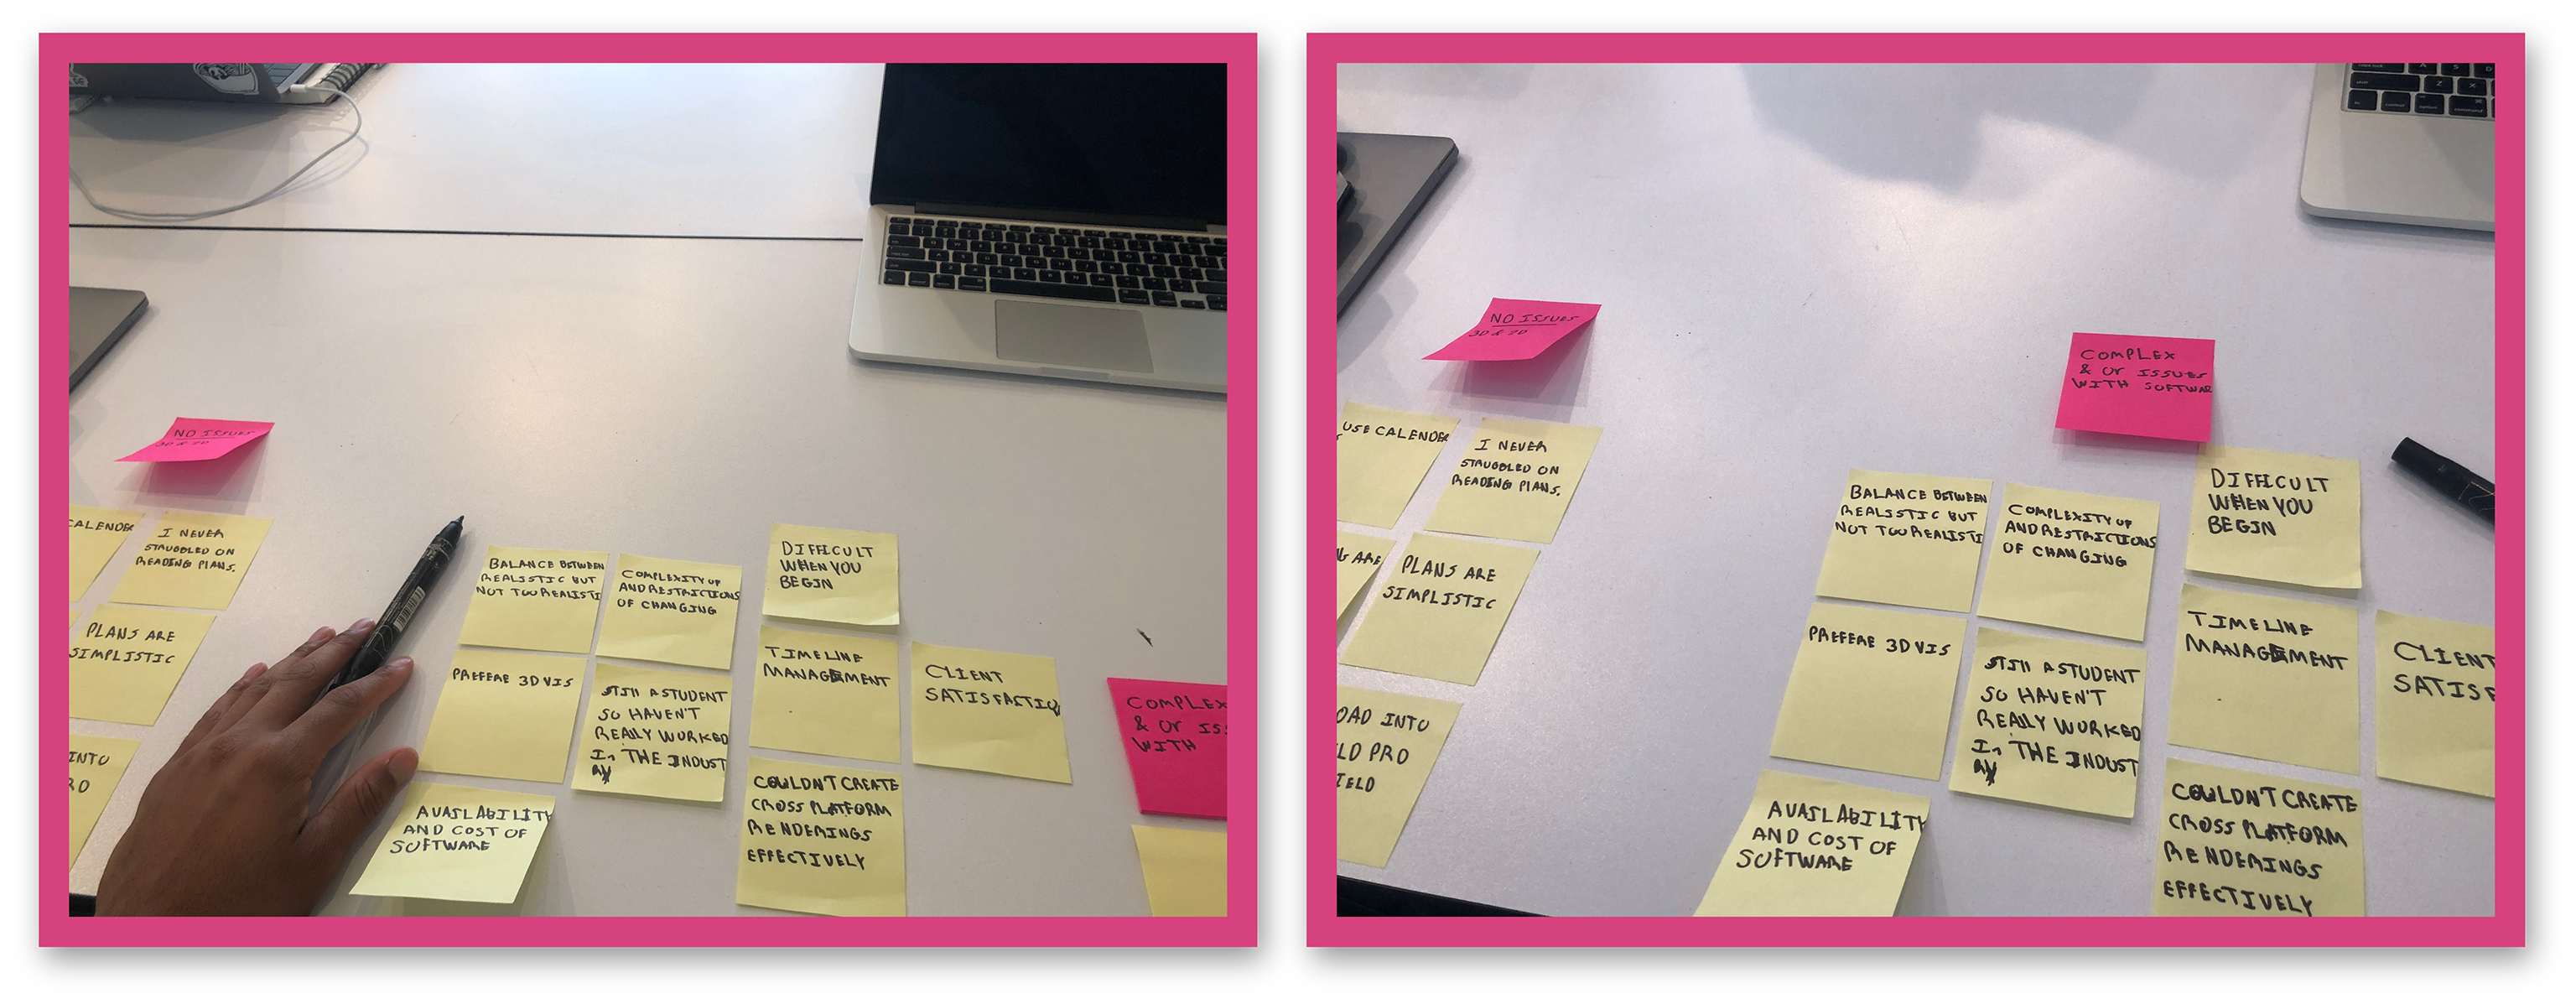 NO ISSUES
3D & 2D
CALENDER
I NEVER
STRUGGLED ON
READING PLANS.
PLANS ARE
SIMPLISTIC
INTO
BALANCE BETWEEN
REALISTIC BUT
NOT TOO REALISTI
COMPLEXITY OF
AND RESTRICTIONS
OF CHANGING
DIFFICULT
WHEN YOU
BEGIN
PREFERE 3D VIS
STIll A STUDENT
SO HAVEN'T
REALLY WORKED
In THE INDUST
RY
TIMELINE
MANAGEMENT
CLIENT
SATISFACTIO
AVAILABILITY
AND COST OF
SOFTWARE
COULDN'T CREATE
CROSS PLATFORM
RENDERINGS
EFFECTIVELY
COMPLEX
& Or IS
WITH
NO ISSUES
3D & 2D
COMPLEX
& Or ISSUES
WITH SOFTWAR
USE CALENDER
I NEVER
STRUGGLED ON
READING PLANS.
ARE
PLANS ARE
SIMPLISTIC
OAD INTO
LD PRO
IELD
BALANCE BETWEEN
REALISTIC BUT
NOT TOO REALISTI
COMPLEXITY OF
AND RESTRICTIONS
OF CHANGING
DIFFICULT
WHEN YOU
BEGIN
PREFERE 3D VIS
STIll A STUDENT
SO HAVEN'T
REALLY WORKED
In THE INDUST
RY
TIMELINE
MANAGEMENT
CLIENT
SATISF
AVAILABILITY
AND COST OF
SOFTWARE
COULDN'T CREATE
CROSS PLATFORM
RENDERINGS
EFFECTIVELY